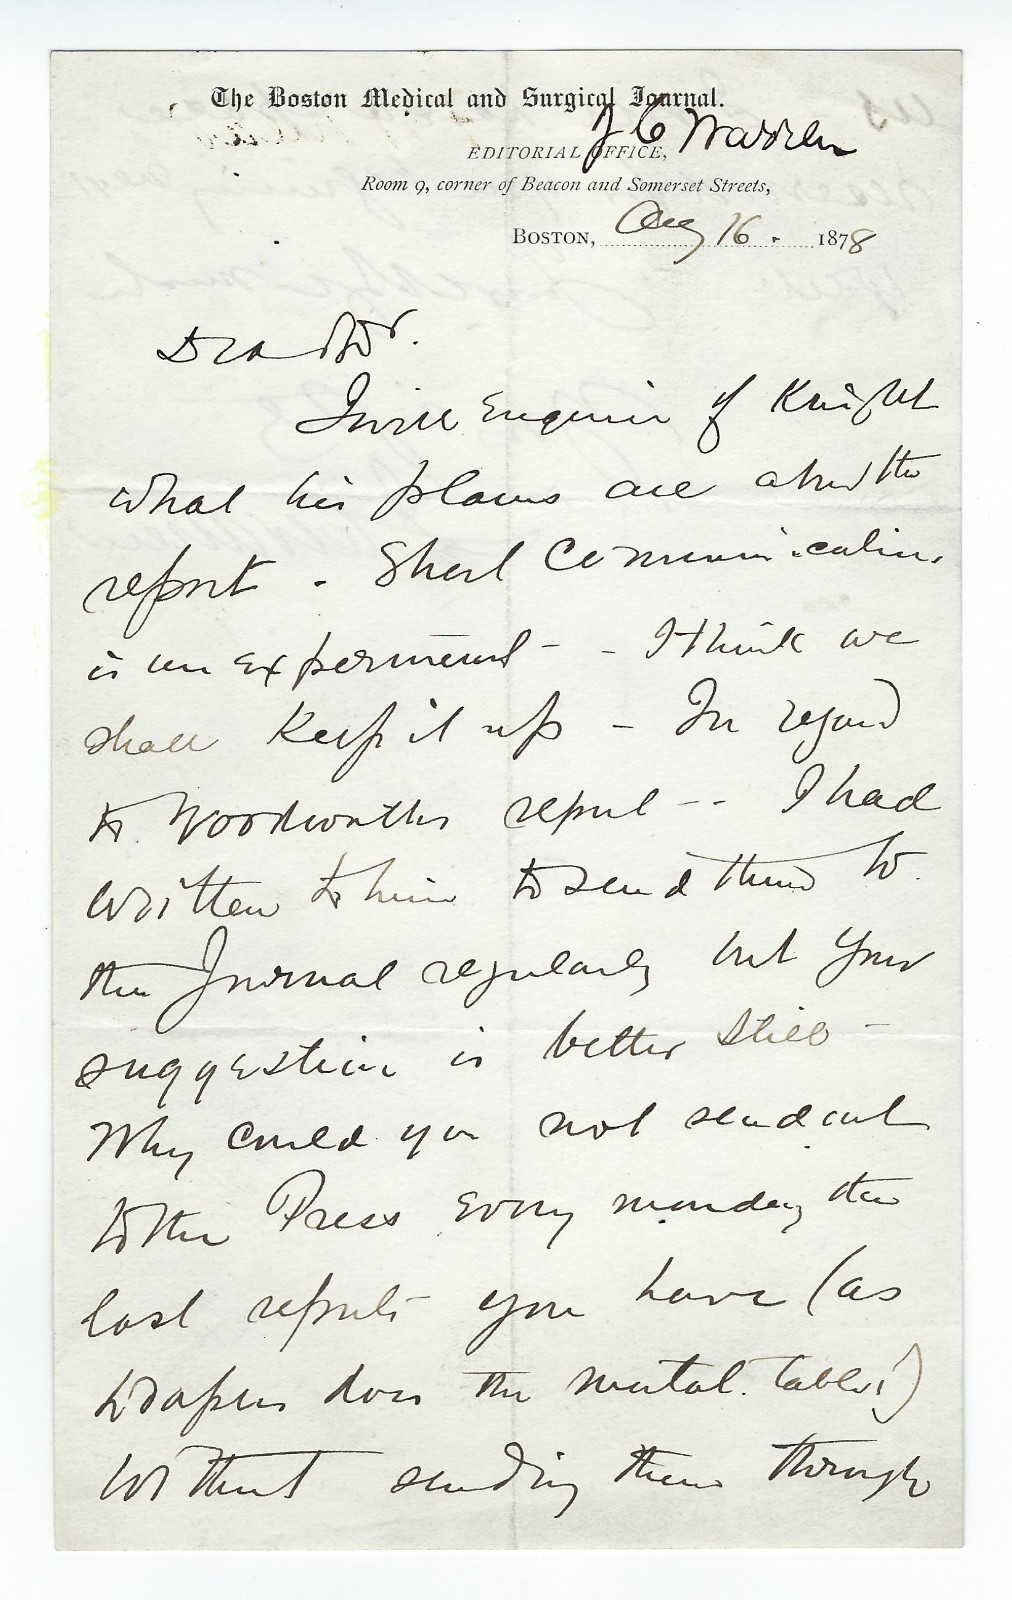 The Boston Medical and Surgical Journal.
J C Warren
EDITORIAL OFFICE,
Room 9, corner of Beacon and Somerset Streets,
BOSTON, Aug 16. 1878
Dear Dr.
I will enquire of Knight
what his plans are about the
report. Short Communication.
is an experiment - - I think we
shall keep it up - In regard
to Woodworths report -- I had
written to him to send them to
the Journal regularly but your
suggestion is better still -
Why could you not send out
to the Press every monday the
last reports you have (as
Draper does the mortal. tables)
without sending them through